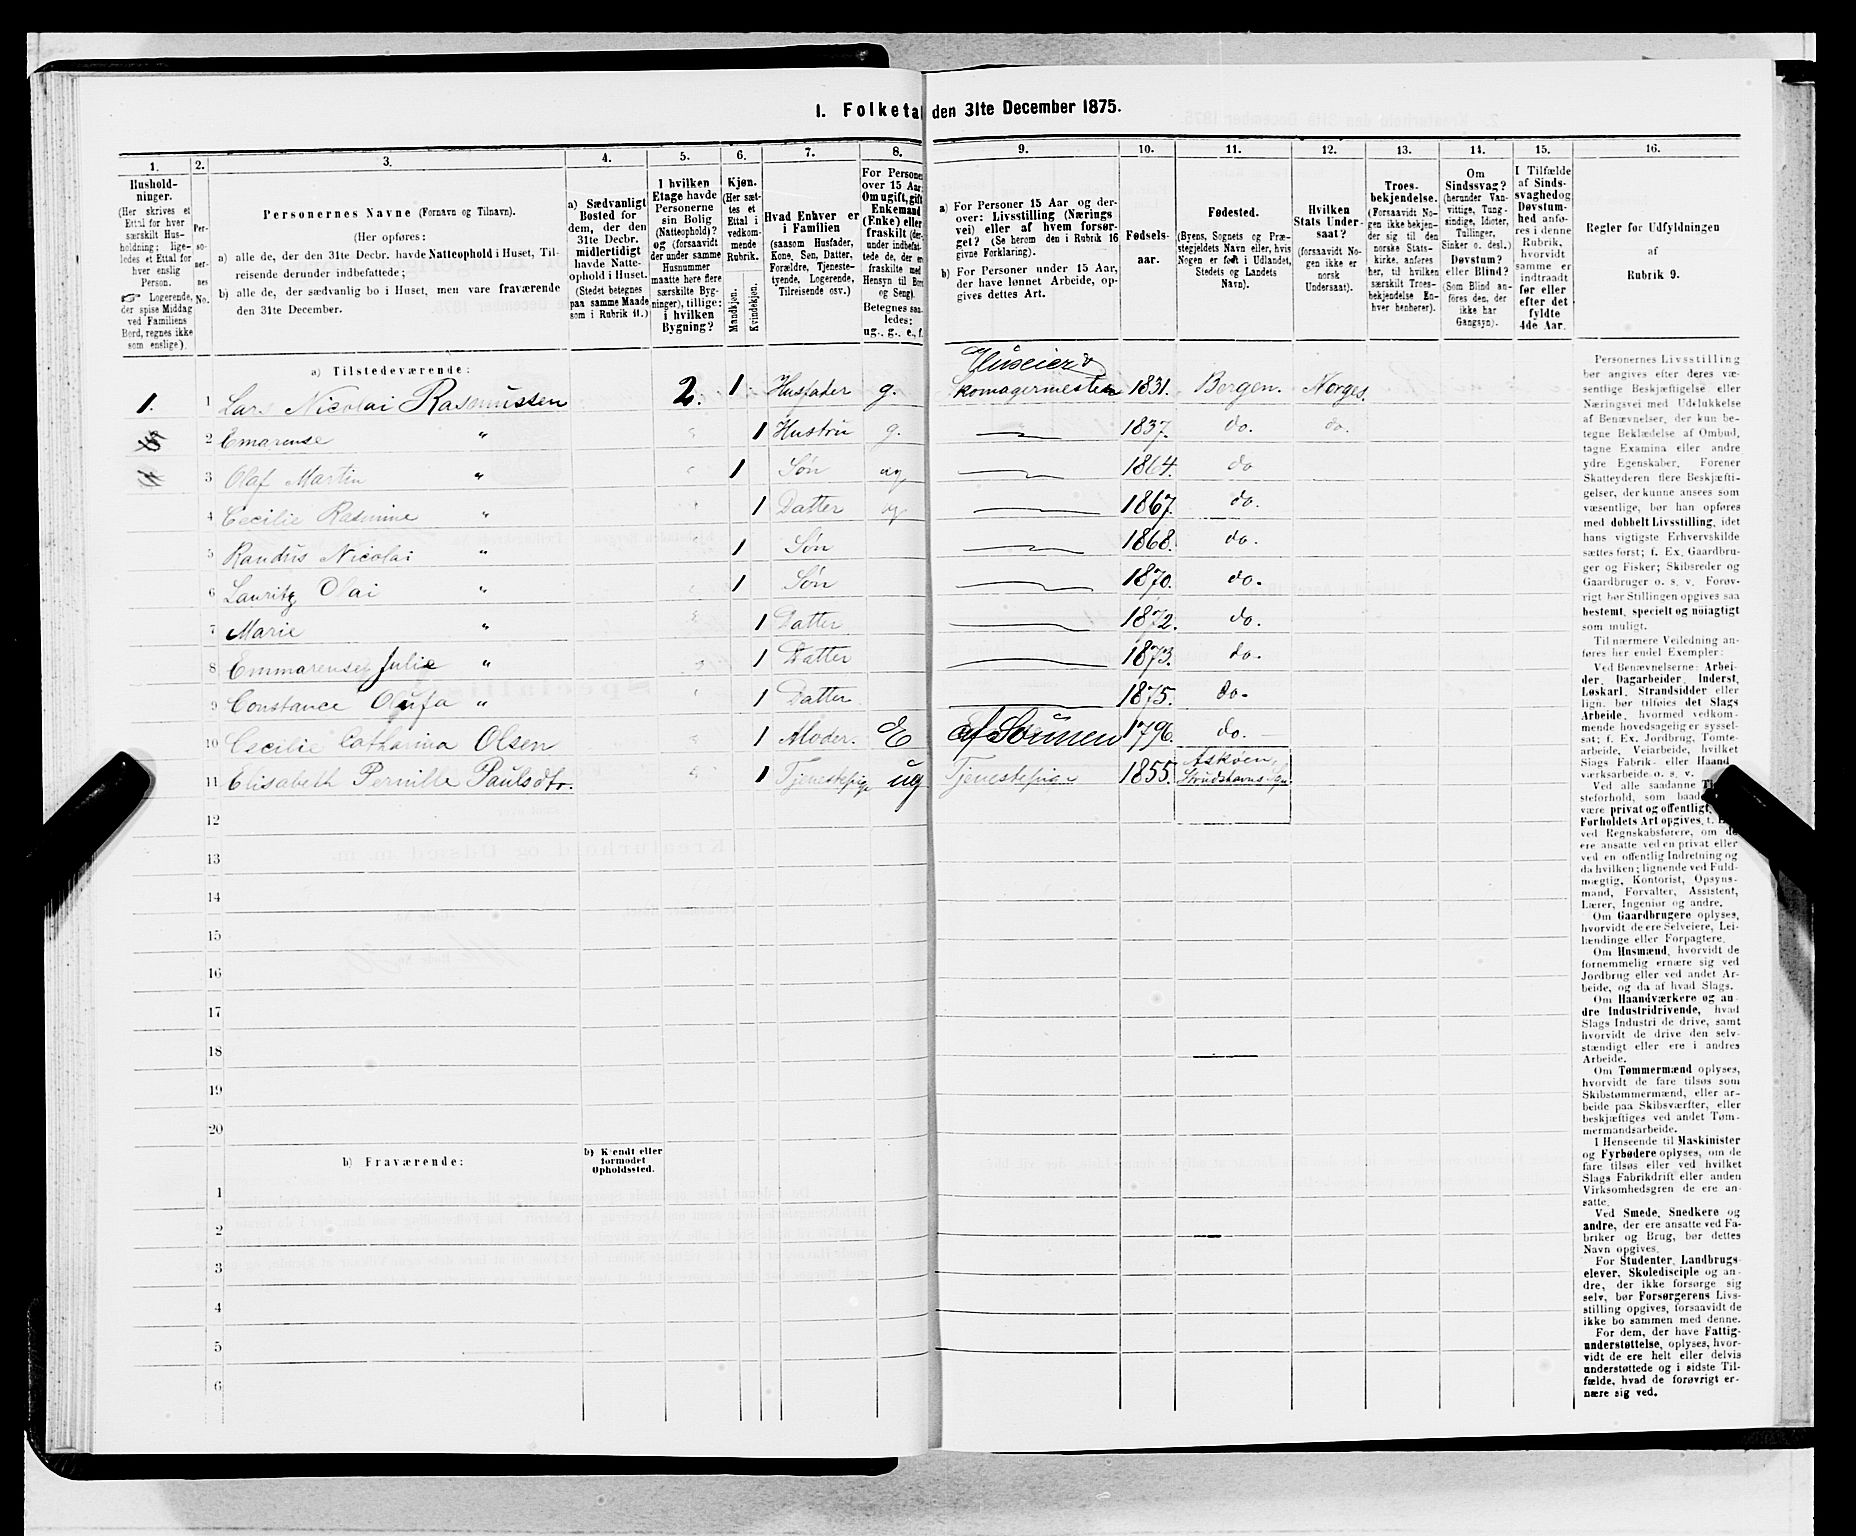 1. Folketal den 31te December 1875.
1. 2. 3. 4. 5. 6. 7. 8. 9. 10. 11. 12. 13. 14. 15. 16.
Hushold-
ninger.
(Her skrives et
Ettal for hver
særskilt Hus-
holdning; lige-
ledes et Ettal for
hver enslig
Person.
☞ Logerende,
der spise Middag
ved Familiens
Bord, regnes ikke
som enslige).
Per-
so-
ner-
nes
No.
Personernes Navne (Fornavn og Tilnavn).
(Her opføres:
a) alle de, der den 31te Decbr. havde Natteophold i Huset, Til-
reisende derunder indbefattede;
b) alle de, der sædvanlig bo i Huset, men vare fraværende
den 31te December.
a) Sædvanligt
Bosted for
dem, der den
31te Decbr.
midlertidigt
havde Natte-
ophold i Huset.
(Stedet betegnes
paa samme Maade
som i Rubrik 11.)
I hvilken
Etage havde
Personerne
sin Bolig
(Natteophold)?
og (forsaavidt
der under samme
Husnummer
maatte høre flere
særskilte Byg-
ninger), tillige:
i hvilken
Bygning?
Kjøn.
(Her sæt-
tes et
Ettal i
vedkom-
mende
Rubrik.
Mandkjøn.
Kvindekjøn.
Hvad Enhver er
i Familien
(saasom Husfader,
Kone, Søn, Datter,
Forældre, Tjeneste-
tyende, Logerende,
Tilreisende osv.)
For Persone
over 15 Aar:
Om ugift, gift
Enkemand
(Enke) eller
fraskilt (der-
under indbefat-
tede de, der er
fraskilte med
Hensyn til Bor
og Seng).
Betegnes saa-
ledes:
ug., g., e., f.
a) For Personer 15 Aar og der-
over: Livsstilling (Nærings
vei) eller af hvem forsør-
get? (Se herom den i Rubrik 16
givne Forklaring).
b) For Personer under 15 Aar,
der have lønnet Arbeide, op-
gives dettes Art.
Fødsels-
aar.
Fødested.
(Byens, Sognets og Præ-
stegjeldets Navn eller, hvis
Nogen er født i Udlandet,
Stedets og Landets
Navn).
Hvilken
Stats Under-
saat?
(forsaavidt No-
gen ikke er
norsk
Undersaat).
Troes-
bekjendelse.
(Forsaavidt No-
gen ikke bekjen-
der sig til den
norske Stats-
kirke, anføres
her, til hvilken
særskilt Troes-
bekjendelse En-
hver henhører).
Om
Sindssvag?
(herunder Van-
vittige, Tung-
sindige, Idioter,
Tullinger,
Sinker o. desl.)
Døvstum?
eller Blind?
(Som Blind an-
føres den, der
ikke har
Gangsyn).
I Tilfælde
af Sinds-
svaghed og
Døvstum-
hed anfø-
res i denne
Rubrik,
hvorvidt
samme er
indtraadt
før eller
efter det
fyldte
4de Aar.
Regler for Udfyldningen
af
Rubrik 9.
a) Tilstedeværende:
Huseier &
1. 1 Lars Nicolai Rasmussen 2. 1 Husfader g. Skomagermester 1831. Bergen. Norges.
2 Emarense " " 1 Hustru g. 1837. do. do.
3 Olaf Martin " " 1 Søn ug 1864. do
4 Cecilie Rasmine " " 1 Datter ug 1867. do.
5 Randus Nicolai " " 1 Søn 1868. do.
6 Lauritz Olai " " 1 Søn 1870. do.
7 Marie " " 1 Datter 1872. do.
8 Emmarense Julie " " 1 Datter 1873. do.
9 Constance Olufa " " 1 Datter 1875. do.
10 Cecilie Catharina Olsen " 1 Moder. E af Sønnen 1796. do.
11 Elisabeth Pernille Paulsdtr. " 1 Tjenestepige ug Tjenestepige 1855. Askøen,
12
13
14
15
16
17
18
19
20
b) Fraværende:
b) Kjendt eller
formodet
Opholdssted.
1
2
3
4
5
6
Personernes Livsstilling
bør angives efter deres væ-
sentlige Beskjæftigelse eller
Næringsvei med Udelukkelse
af Benævnelser, der kun be-
tegne Beklædelse af Ombud,
tagne Examina eller andre
ydre Egenskaber. Forener
Skatteyderen flere Beskjæfti-
gelser, der kunne ansees som
væsentlige, bør han opføres
med dobbelt Livsstilling, idet
hans vigtigste Erhvervskilde
sættes først; f. Ex. Gaardbru-
ger og Fisker; Skibsreder og
Gaardbruger o. s. v. Forøv-
rigt bør Stillingen opgives saa
bestemt, specielt og nøiagtigt
som muligt.
Til nærmere Veiledning an-
føres her endel Exempler:
Ved Benævnelserne: Arbei-
der, Dagarbeider, Inderst,
Løskarl, Strandsidder eller
lign. bør tilføies det Slags
Arbeide, hvormed vedkom-
mende hovedsagelig er syssel-
sat; f. Ex. Jordbrug, Tømte-
arbeide, Veiarbeide, hvilket
Slags Fabrik- eller Haand
værksarbeide o. s. v.
Ved alle saadanne
steforhold, som baade
være privat og offentligt,
Forholdets Art opgives, t.
ved Regnskabsførere, om de
ere ansatte ved en privat eller
ved en offentlig Indretning og
da hvilken; lignende ved Fuld-
mægtig, Kontorist, Opsyns-
mand, Forvalter, Assistent,
Lærer, Ingeniør og andre.
Om Gaardbrugere oplyses,
hvorvidt de ere Selveiere, Lei-
lændinge eller Forpagtere.
Om Husmænd, hvorvidt de
fornemmelig ernære sig ved
Jordbrug eller ved andet Ar-
beide, og da af hvad Slags.
Om Haandværkere og an-
dre Industridrivende, hvad
Slags Industri de drive, samt
hvorvidt de drive den selv-
stændigt eller ere i andres
Arbeide.
Om Tømmermænd oplyses,
hvorvidt de fare tilsøs som
Skibstømmermænd, eller ar-
beide paa Skibsværfter, eller
beskjæftiges ved andet Tøm-
mermandsarbeide.
I Henseende til Maskinister
og Fyrbødere oplyses, om de
fare tilsøs eller ved hvilket
Slags Fabrikdrift eller anden
Virksomhedsgren de ere an-
satte.
Ved Smede, Snedkere og
andre, der ere ansatte ved Fa-
briker og Brug, bør dettes
Navn opgives.
For Studenter, Landbrugs-
elever, Skoledisciple og an-
dre, der ikke forsørge sig
selv, bør Forsørgerens Livs-
stilling opgives, forsaavidt de
ikke bo sammen med denne.
For dem, der have Fattig-
understøttelse, oplyses, hvor-
vidt de ere helt eller delvis
understøttede og i sidste Til-
fælde, hvad de forøvrigt er-
nære sig ved.